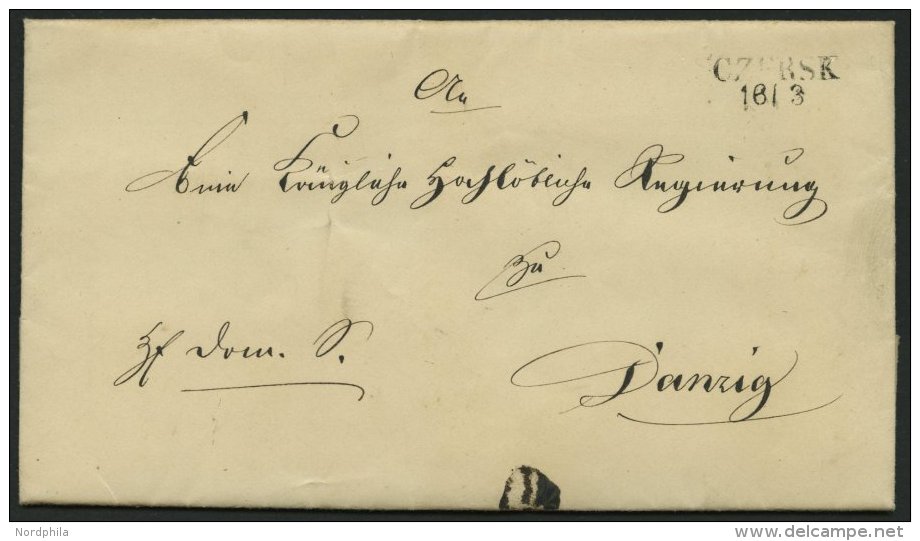 CZERSK
16/3
An
Eine Königliche Hochlöbliche Regierung
zu
Danzig
Dom. S.
Nordphila
delcampe.net